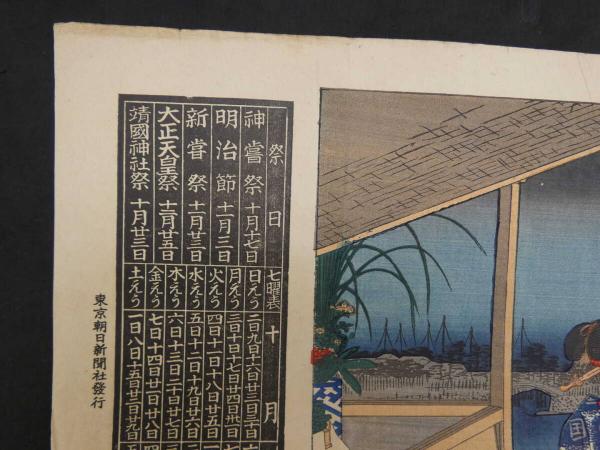 祭日
神嘗祭 十月十七日
明治節 十一月三日
新嘗祭 十一月廿三日
大正天皇祭 十二月廿五日
靖國神社祭 十月廿三日
七曜表 十月
日えう 二日九日十六日廿三日三十日
月えう 三日十日十七日廿四日卅一日
火えう 四日十一日十八日廿五日
水えう 五日十二日十九日廿六日
木えう 六日十三日二十日廿七日
金えう 七日十四日廿一日廿八日
土えう 一日八日十五日廿二日廿九日
東京朝日新聞社發行